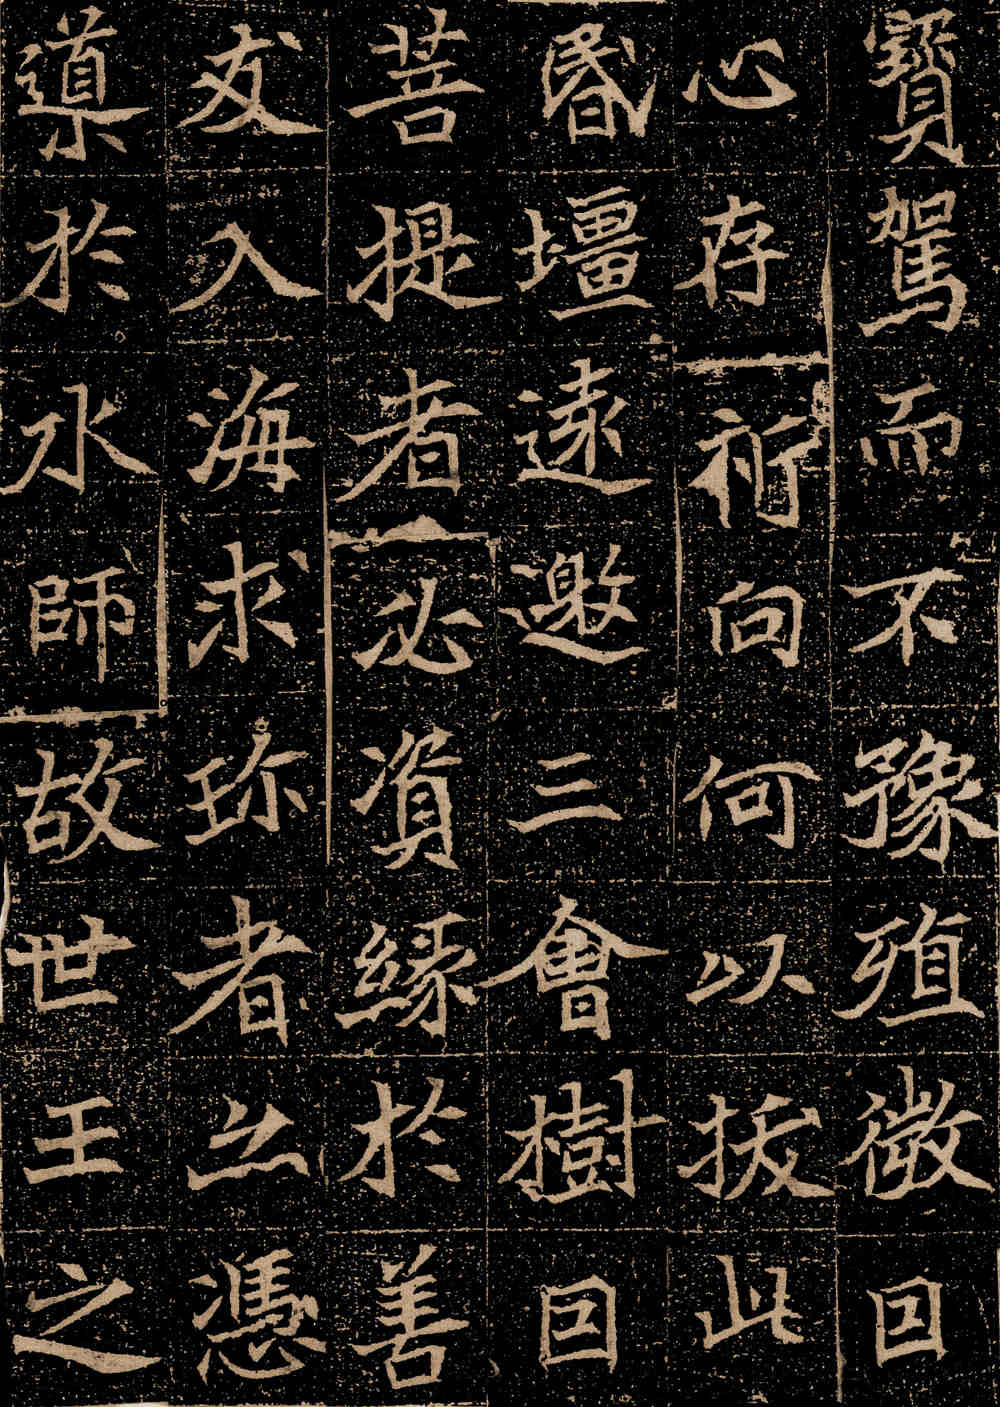 寶駕而不豫殖微因
心存祈向何以拔此
昏壃遠邀三會樹因
菩提者必資緣於善
友入海求珎者亦憑
導於水師故世王之